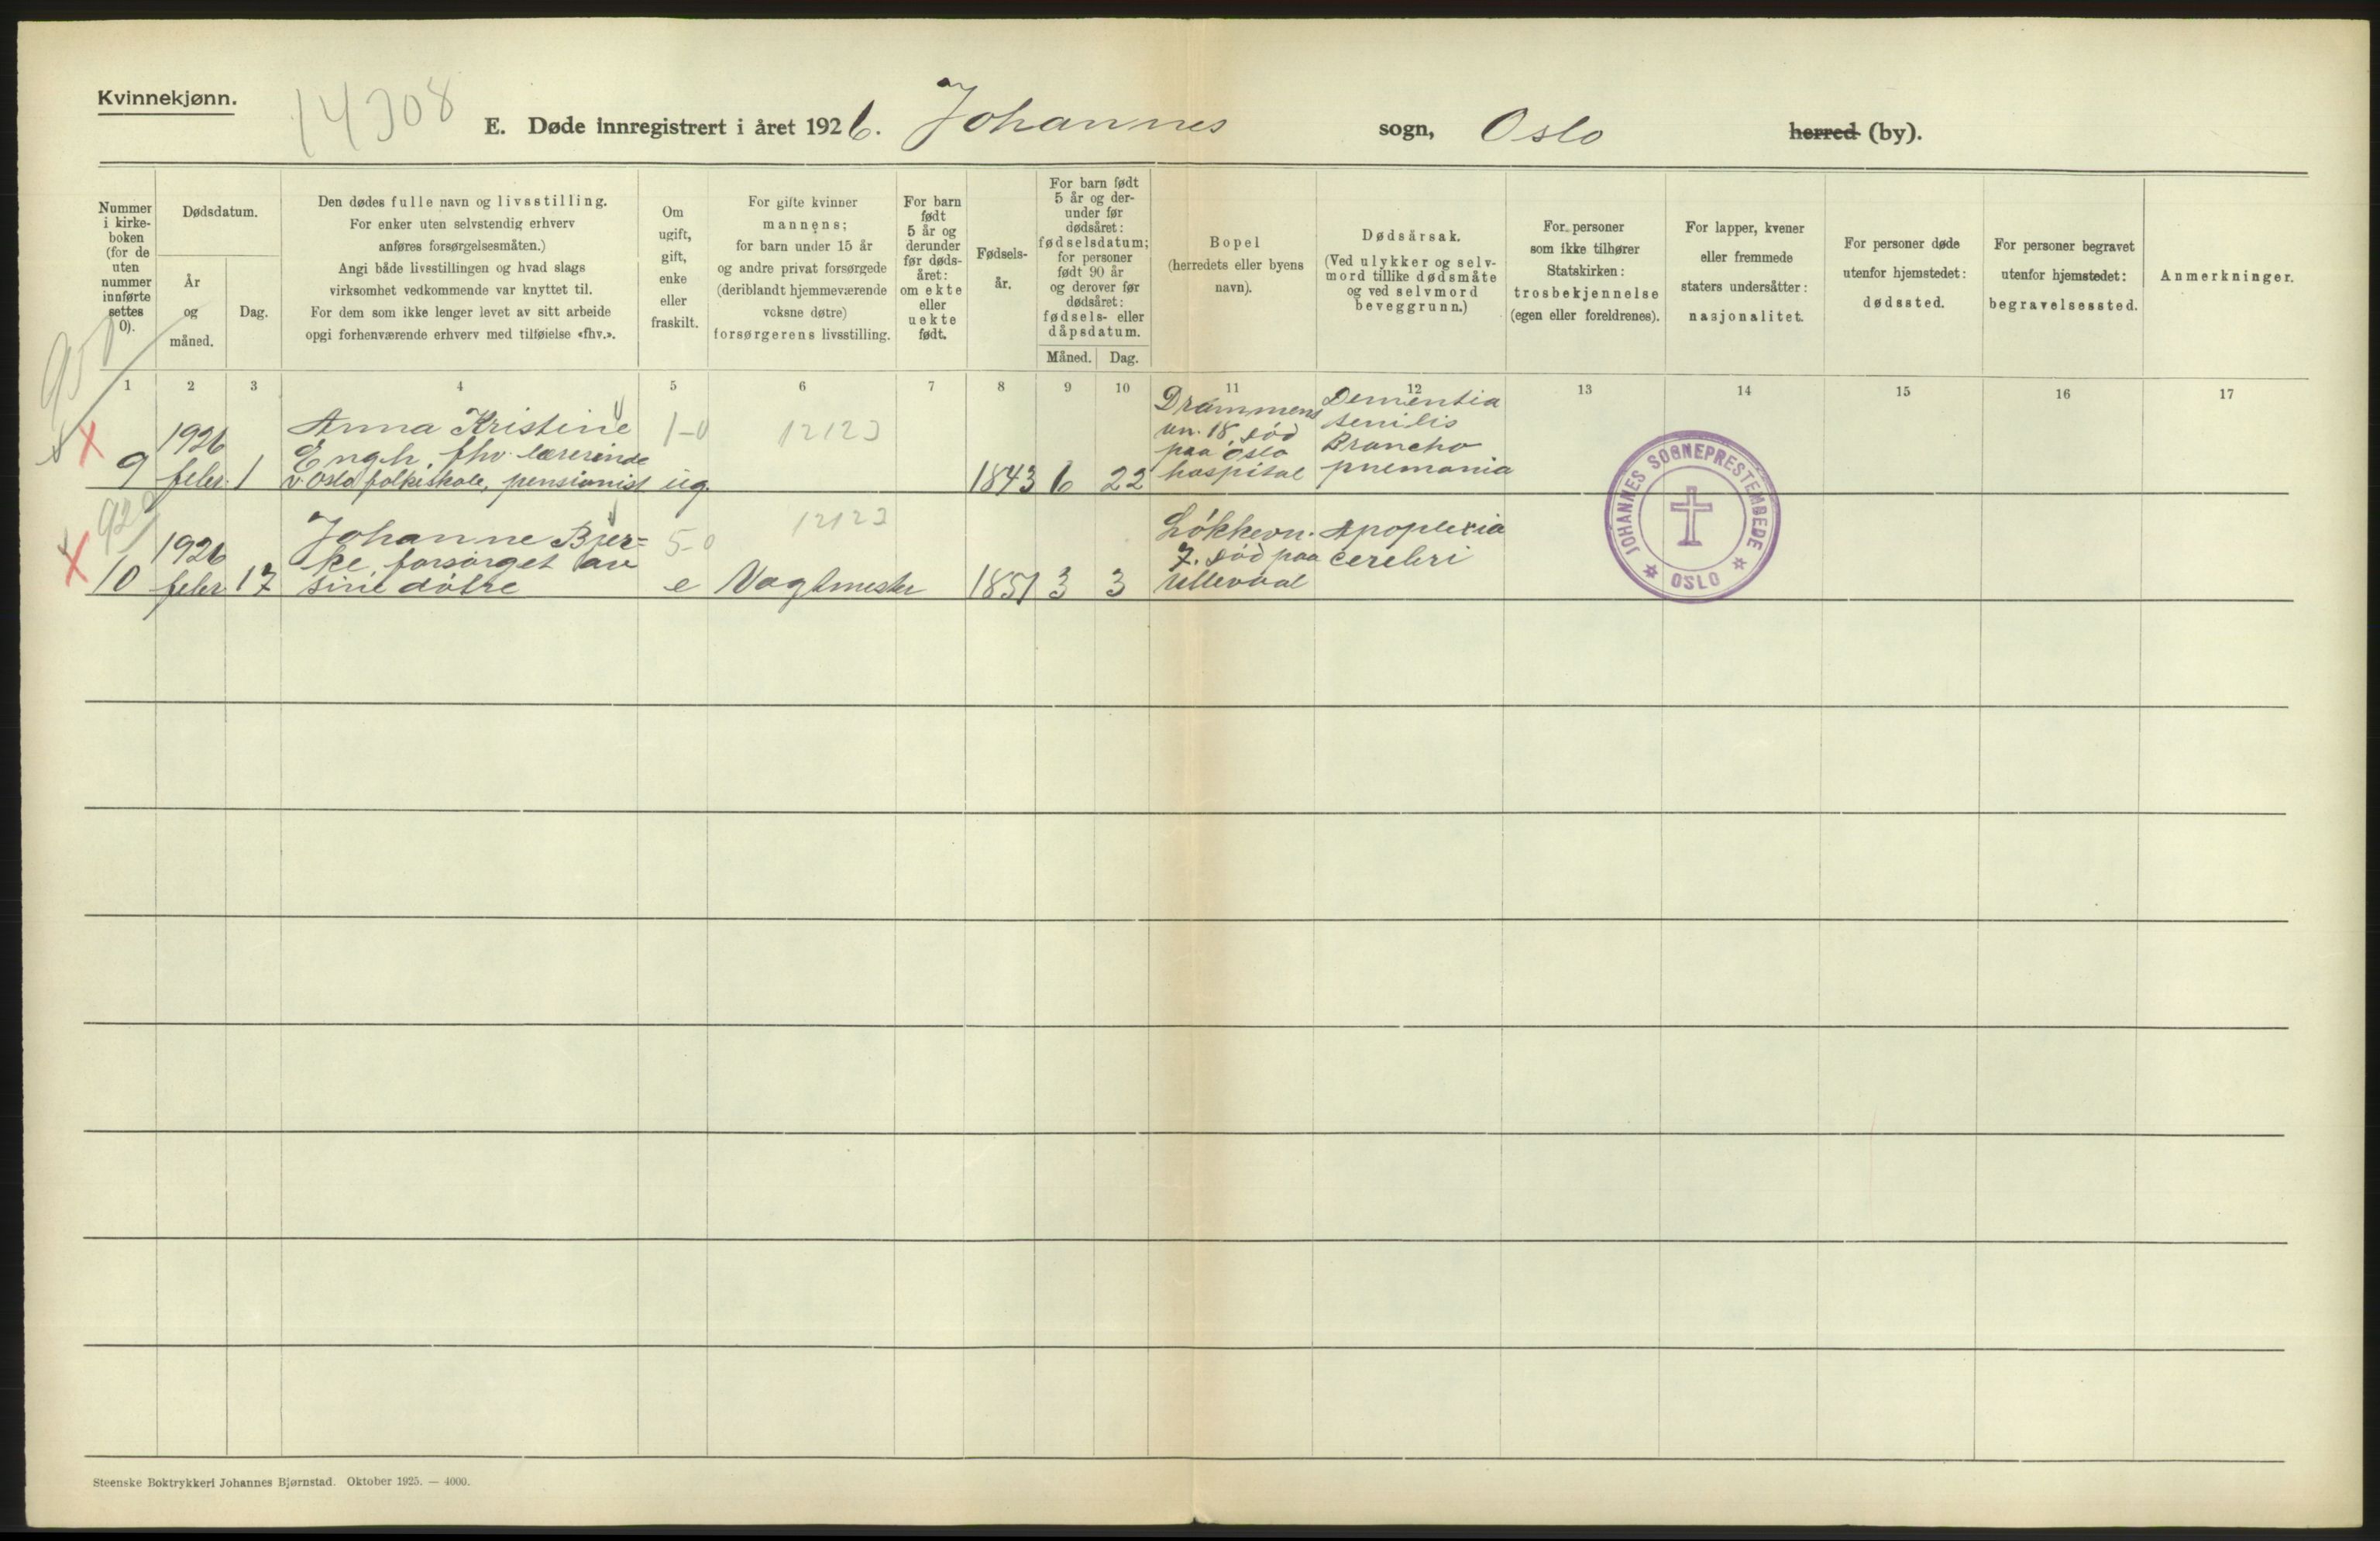 Kvinnekjønn.
14308
E. Døde innregistrert i året 1926. Johannes sogn, Oslo herred (by).
Nummer
i kirke-
boken
(for de
uten
nummer
innførte
settes
0).
Dødsdatum.
År
og
måned.
Dag.
Den dødes fulle navn og livsstilling.
For enker uten selvstendig erhverv
anføres forsørgelsesmåten.)
Angi både livsstillingen og hvad slags
virksomhet vedkommende var knyttet til.
For dem som ikke lenger levet av sitt arbeide
opgi forhenværende erhverv med tilføielse «fhv.».
Om
ugift,
gift,
enke
eller
fraskilt.
For gifte kvinner
mannens;
for barn under 15 år
og andre privat forsørgede
(deriblandt hjemmeværende
voksne døtre)
forsørgerens livsstilling.
For barn
født
5 år og
derunder
før døds-
året:
om ekte
eller
uekte
født.
Fødsels-
år.
For barn født
5 år og der-
under før
dødsåret:
fødselsdatum;
for personer
født 90 år
og derover før
dødsåret:
fødsels- eller
dåpsdatum.
Måned. Dag.
Bopel
(herredets eller byens
navn).
Dødsårsak.
(Ved ulykker og selv-
mord tillike dødsmåte
og ved selvmord
beveggrunn.)
For personer
som ikke tilhører
Statskirken:
trosbekjennelse
(egen eller foreldrenes).
For lapper, kvener
eller fremmede
staters undersåtter:
nasjonalitet.
For personer døde
utenfor hjemstedet:
dødssted.
For personer begravet
utenfor hjemstedet:
begravelsessted.
Anmerkninger.
1 2 3 4 5 6 7 8 9 10 11 12 13 14 15 16 17
9
1926
febr. 1
Anna Kristine
Engh, fhv. lærerinde
v. Oslo folkeskole, pensionist
1-0
ug.
12123
1843 6 22
Drammens
vn. 18, död
paa Oslo
hospital
Dementia
senilis
Broncho
pnemonia
10
1926
febr 17
Johanne Bjer=
ke, forsörget av
sine dötre
5-0
e
12123
Vagtmester
1851 3 3
Lökkevn.
7. död paa
Ullevaal
Apoplexia
cerebri
JOHANNES SOGNEPRESTEMBEDE
OSLO
Steenske Boktrykkeri Johannes Bjørnstad. Oktober 1925. — 4000.